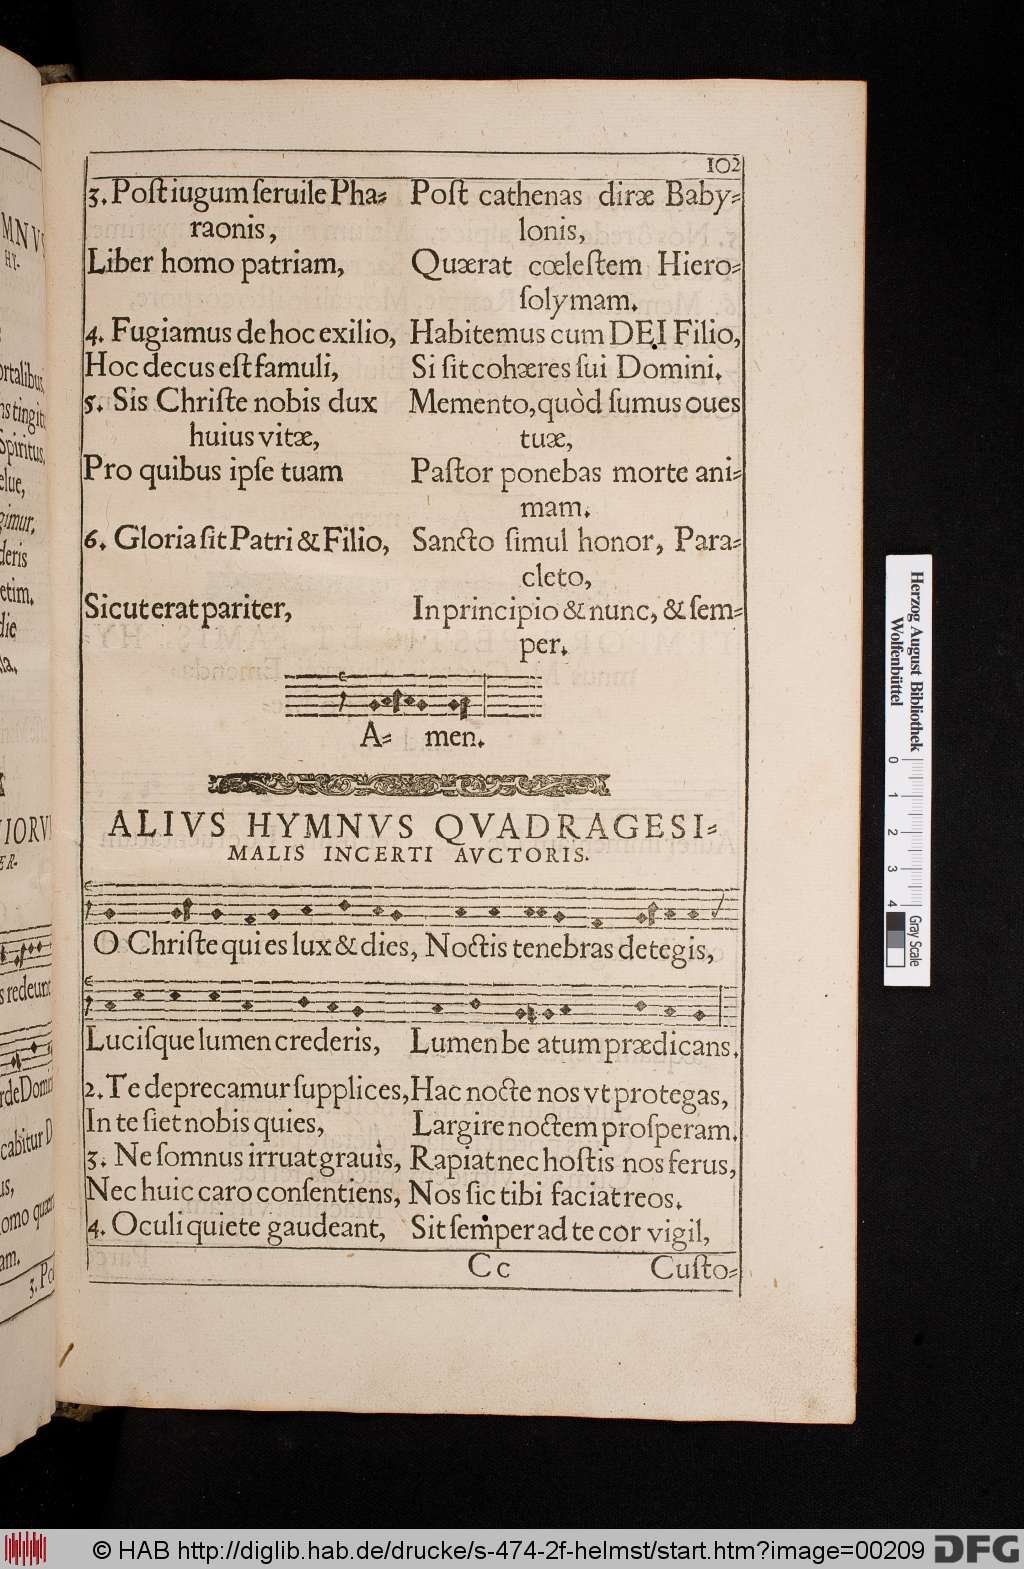 102
3. Poſt iugum ſeruile Pha= Poſt cathenas diræ Baby=
raonis, lonis,
Liber homo patriam, Quærat cœleſtem Hiero=
ſolymam.
4. Fugiamus de hoc exilio, Habitemus cum DEI Filio,
Hoc decus eſt famuli, Si ſit cohæres ſui Domini.
5. Sis Chriſte nobis dux Memento, quòd ſumus oues
huius vitæ, tuæ,
Pro quibus ipſe tuam Paſtor ponebas morte ani=
mam.
6. Gloria ſit Patri & Filio, Sancto ſimul honor, Para=
cleto,
Sicut erat pariter, In principio & nunc, & ſem=
per.
A= men.
ALIVS HYMNVS QVADRAGESI=
MALIS INCERTI AVCTORIS.
O Chriſte qui es lux & dies, Noctis tenebras detegis,
Luciſque lumen crederis, Lumen be atum prædicans.
2. Te deprecamur ſupplices, Hac nocte nos vt protegas,
In te ſiet nobis quies, Largire noctem proſperam.
3. Ne ſomnus irruat grauis, Rapiat nec hoſtis nos ferus,
Nec huic caro conſentiens, Nos ſic tibi faciat reos.
4. Oculi quiete gaudeant, Sit ſemper ad te cor vigil,
Cc Cuſto=
MNVS
HY-
ortalibus,
ns tingit
Spiritus,
elue,
gimur,
deris
etim.
die
la.
IORVM
ER-
s redeunt
rde Domi
cabitur D
us,
omo quær
am.
3. Po
Herzog August Bibliothek
Wolfenbüttel
0 1 2 3 4
Gray Scale
© HAB http://diglib.hab.de/drucke/s-474-2f-helmst/start.htm?image=00209
DFG